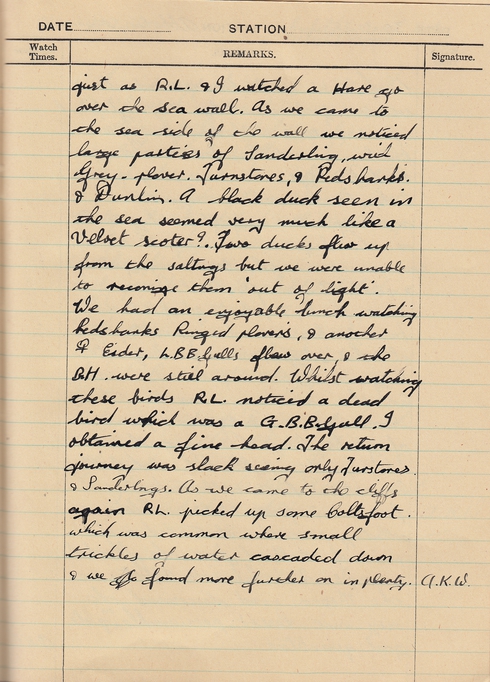 DATE STATION
Watch Times. REMARKS. Signature.
just as R.L. & I watched a Hare go
over the sea wall. As we came to
the sea side of the wall we noticed
large parties of Sanderling, with
Grey-plover. Turnstones, & Redshanks.
& Dunlin. A black duck seen in
the sea seemed very much like a
Velvet scoter?. Two ducks flew up
from the saltings but we were unable
to reconise them 'out of light'.
We had an enjoyable lunch watching
Redshanks Ringed plovers, & another
♀ Eider, L.B.B.Gulls flew over, & the
B.H. were still around. Whilst watching
these birds R.L. noticed a dead
bird which was a G.B.B.Gull. I
obtained a fine head. The return
journey was slack seeing only Turstones
& Sanderlings. As we came to the cliffs
again R.L. picked up some Coltsfoot.
which was common where small
trickles of water cascaded down
& we found more further on in plenty. A.K.W.